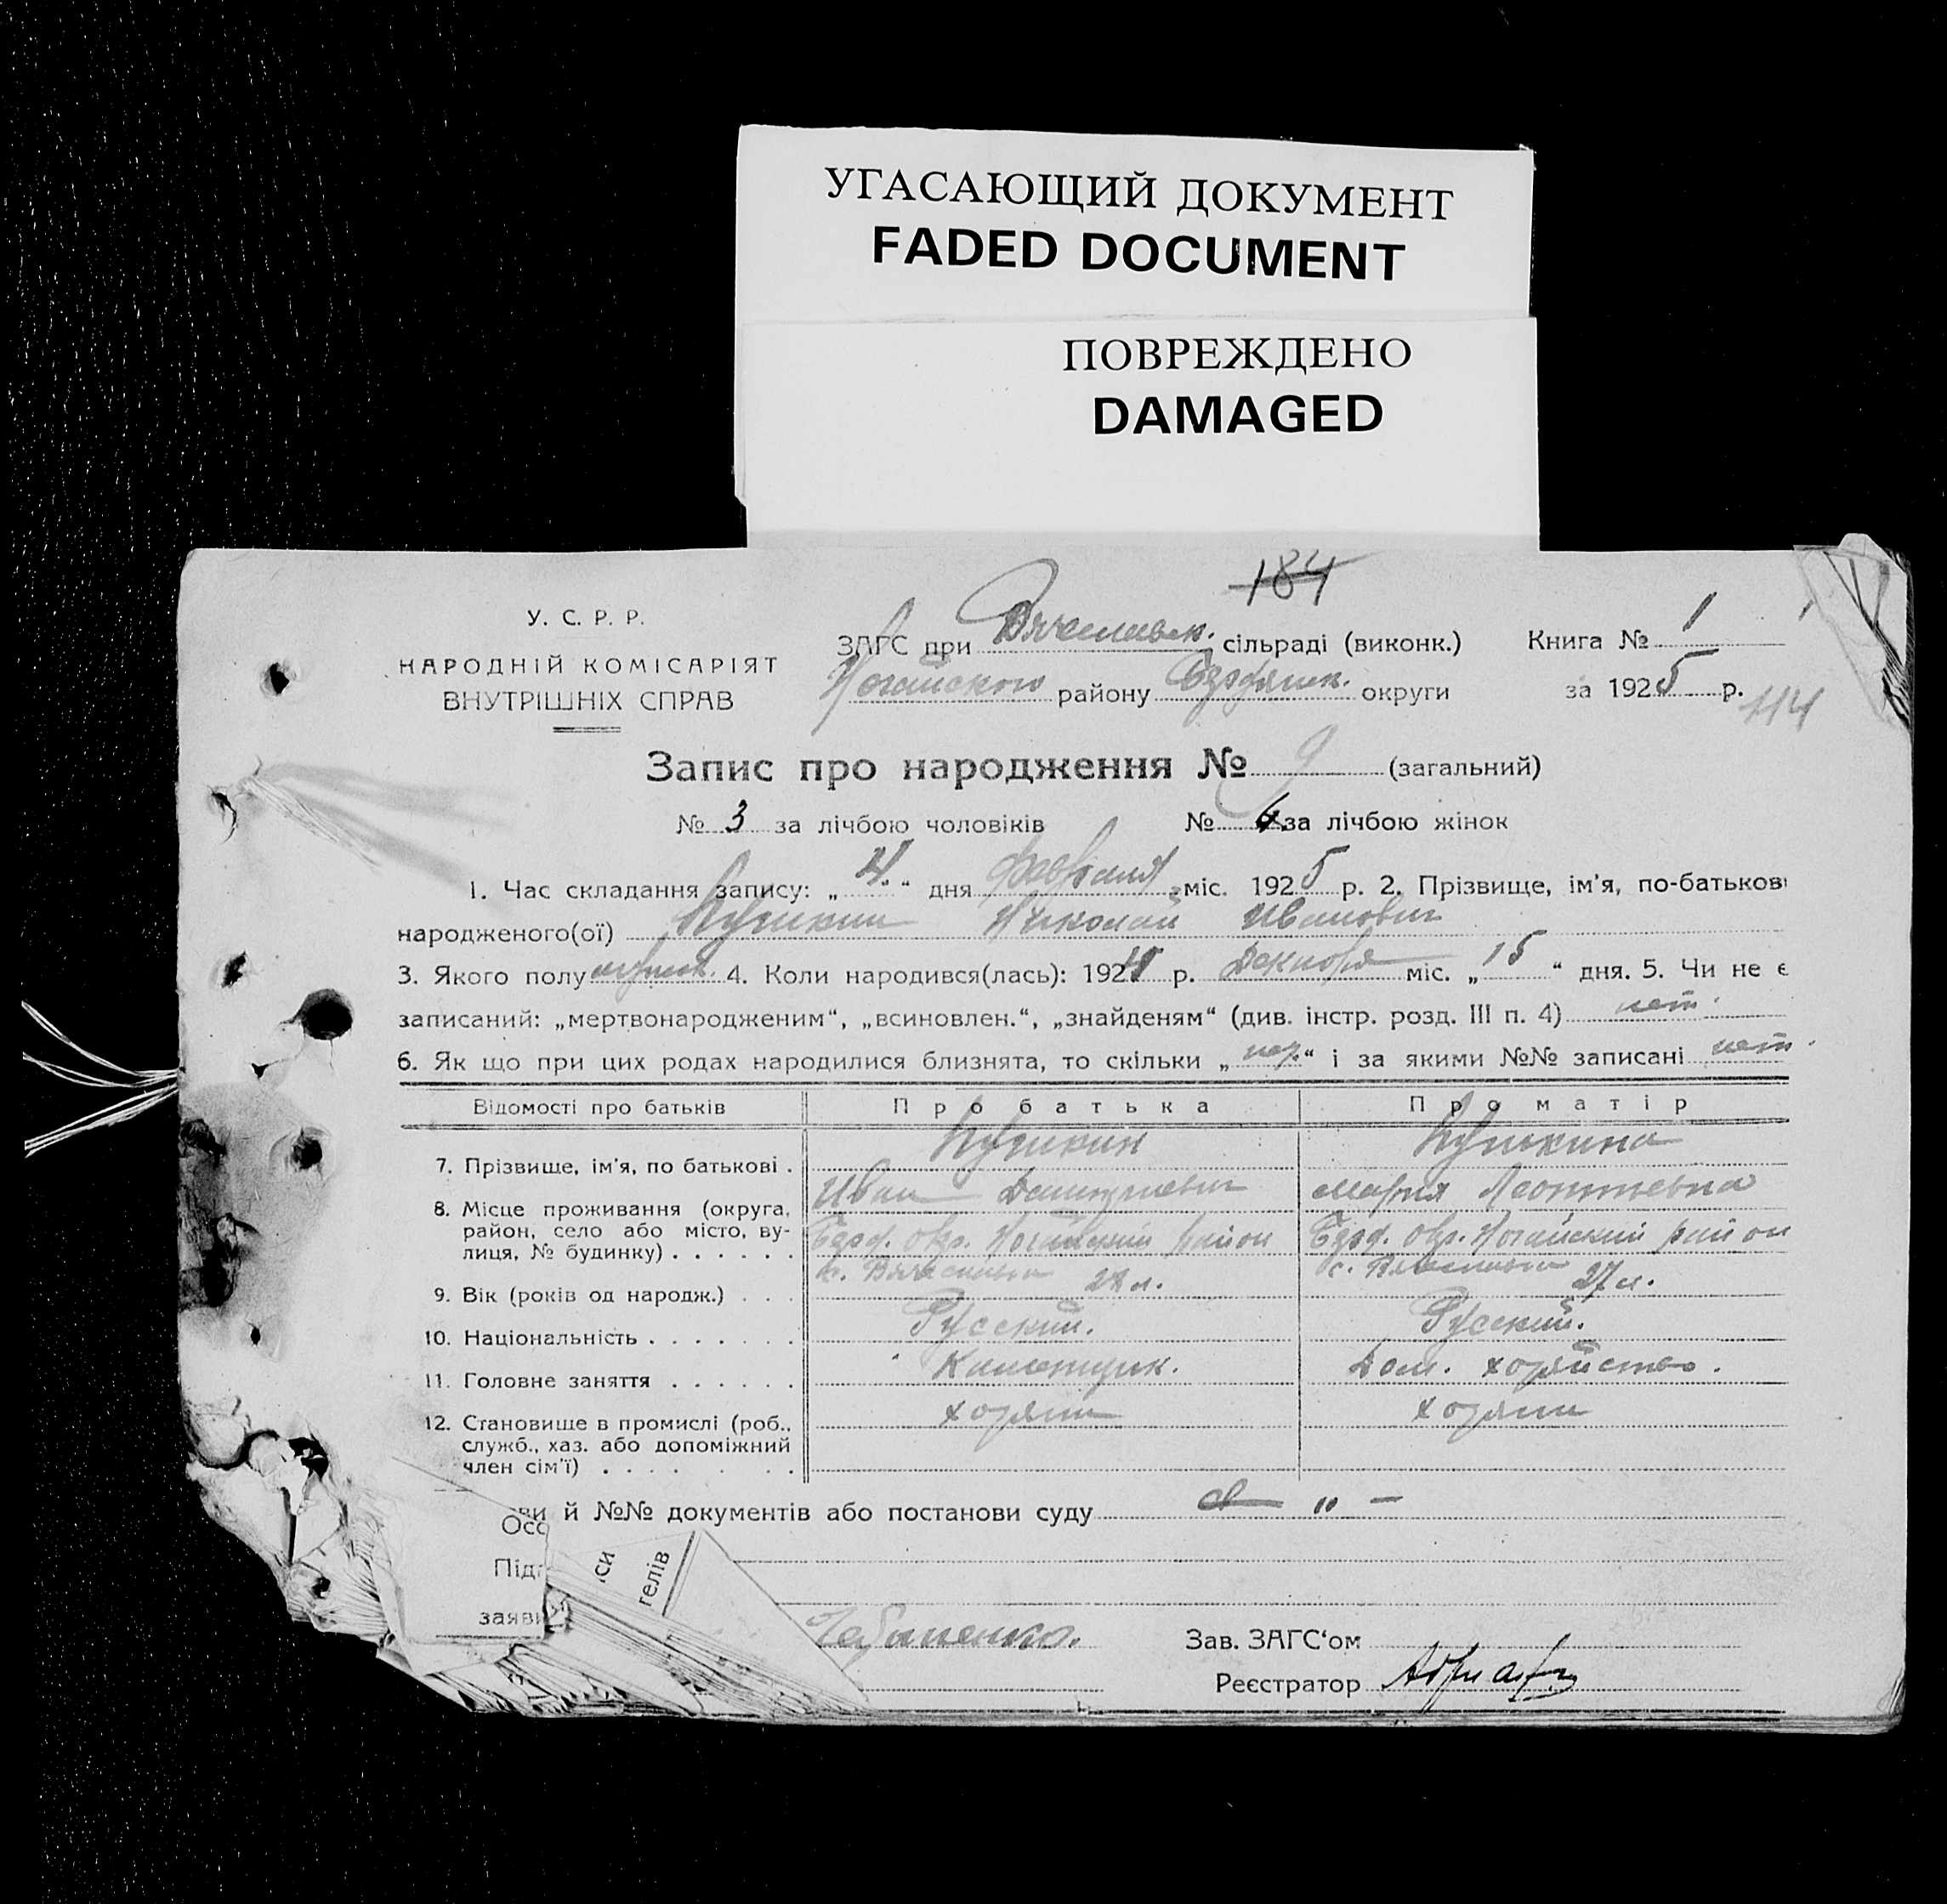 УГАСАЮЩИЙ ДОКУМЕНТ
FADED DOCUMENT
ПОВРЕЖДЕНО
DAMAGED
184
У. С. Р. Р.
НАРОДНІЙ КОМІСАРІЯТ
ВНУТРІШНІХ СПРАВ
ЗАГС при Вячеславск. сільраді (виконк.) Книга № 1
Ногайского району Бердянск. округи за 1925 р.
114
Запис про народження № 9 (загальний)
№ 3 за лічбою чоловіків № за лічбою жінок
1. Час складання запису: „ 4 “ дня февраля міс. 1925 р. 2. Прізвище, ім'я, по-батькові
народженого(ої) Николай Иванович
3. Якого полу мужск. 4. Коли народився(лась): 1924 р. Декабря міс. „ 15 “ дня. 5. Чи не є
записаний: „мертвонародженим“, „всиновлен.“, „знайденям“ (див. інстр. розд. III п. 4) нет.
6. Як що при цих родах народилися близнята, то скільки „ нет “ і за якими №№ записані нет.
Відомості про батьків Про батька Про матір
7. Прізвище, ім'я, по батькові .
Иван Мария Леонтьевна
8. Місце проживання (округа, район, село або місто, вулиця, № будинку) . . . . . .
Бердј. окр. Ногайский район Бердј. окр. Ногайский район
9. Вік (років од народж.) . . . 28 л. 27 л.
10. Національність . . . . . . . Русский. Русский.
11. Головне заняття . . . . . . Дом. хозяйство.
12. Становище в промислі (роб., служб., хаз. або допоміжний член сім'ї) . . . . хозяин хозяин
ви й №№ документів або постанови суду
Осо
Підп
заяви
си
телів
Зав. ЗАГС'ом
Реєстратор